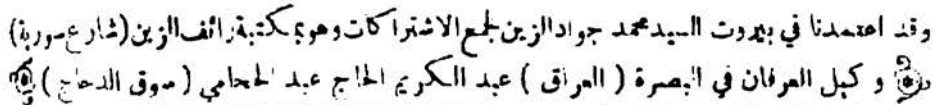 وقد اعتمدنا في بيروت السيد محمد جواد الزين لجمع الاشتراكات وهو بمكتبة رائف الزين (شارع سورية)
وكيل العرفان في البصرة ( العراق ) عبد الكريم الحاج عبد المحامي ( سوق الدجاج )